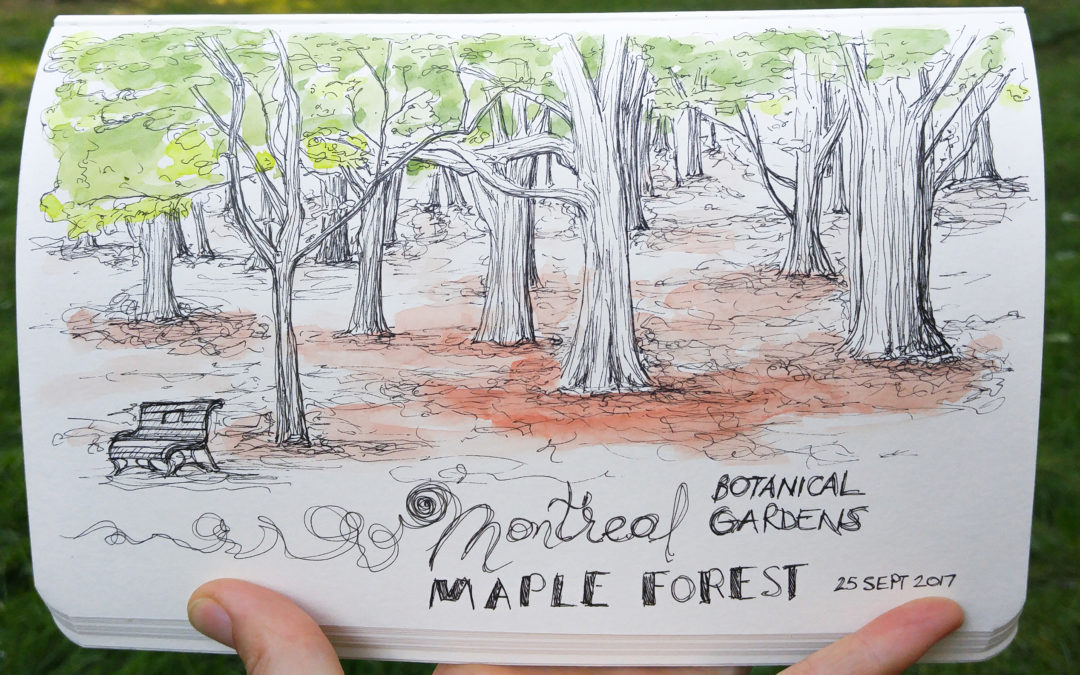 Montreal
BOTANICAL
GARDENS
MAPLE FOREST
25 SEPT 2017